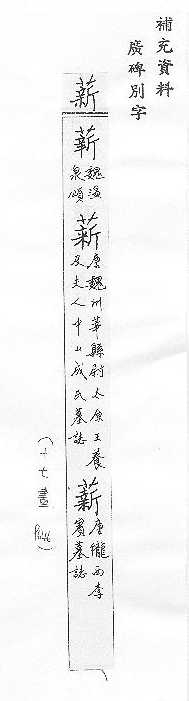 補充資料
廣碑別字
薪
薪
魏溫
泉頌
薪
唐魏州莘縣尉太原王養
及夫人中山成氏墓誌
薪
唐隴西李
賓墓誌
(十七畫